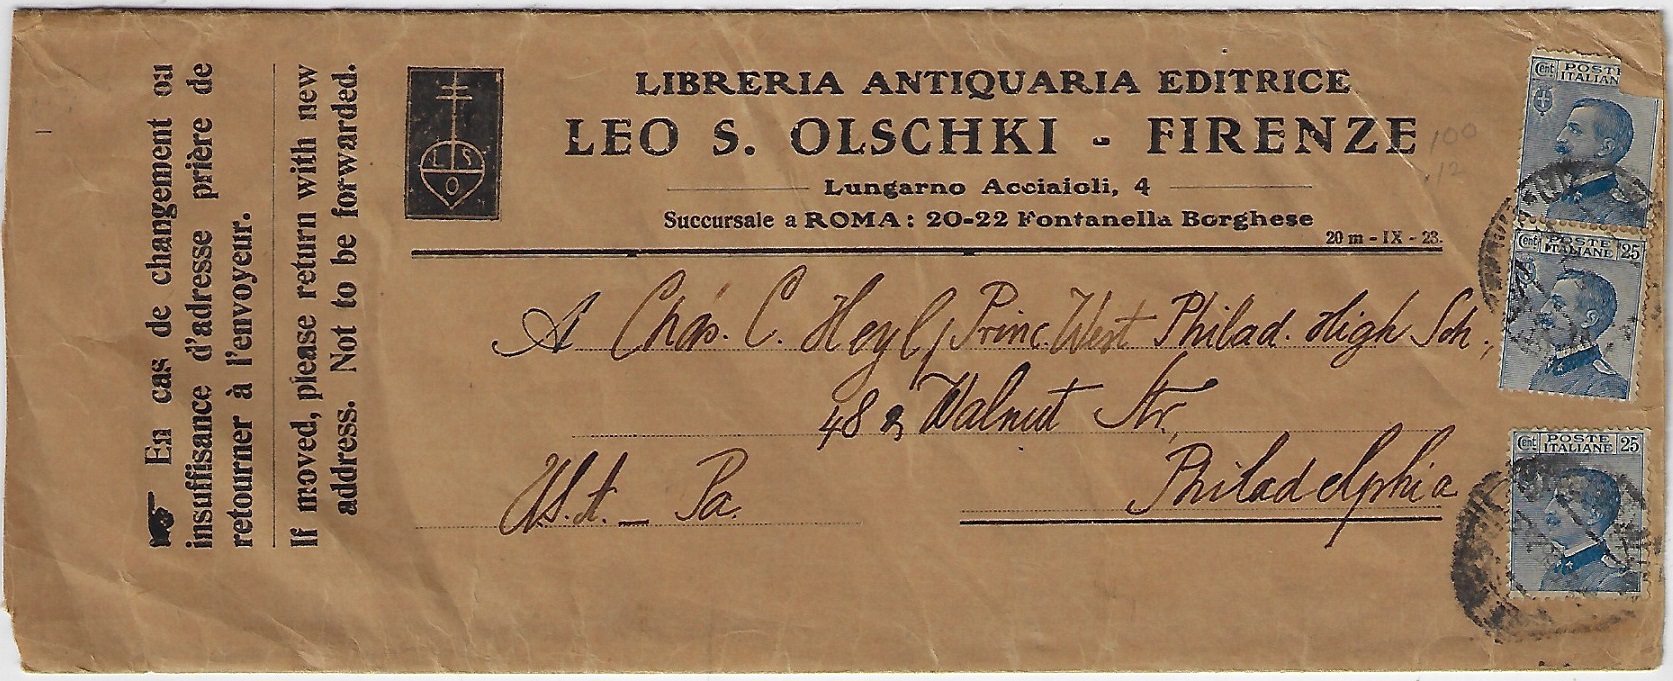 ☛ En cas de changement ou
insuffisance d'adresse prière de
retourner à l'envoyeur.
If moved, please return with new
address. Not to be forwarded.
L S
O
LIBRERIA ANTIQUARIA EDITRICE
LEO S. OLSCHKI - FIRENZE
Lungarno Acciaioli, 4
Succursale a ROMA: 20-22 Fontanella Borghese
20 m - IX - 23.
100
12
A Chas. C. Heyl, Princ. West Philad. High Sch.,
48 & Walnut Str.,
Philadelphia
U.S.A. — Pa.
Cent POSTE
ITALIAN
Cent POSTE 25
ITALIANE
Cent POSTE 25
ITALIANE